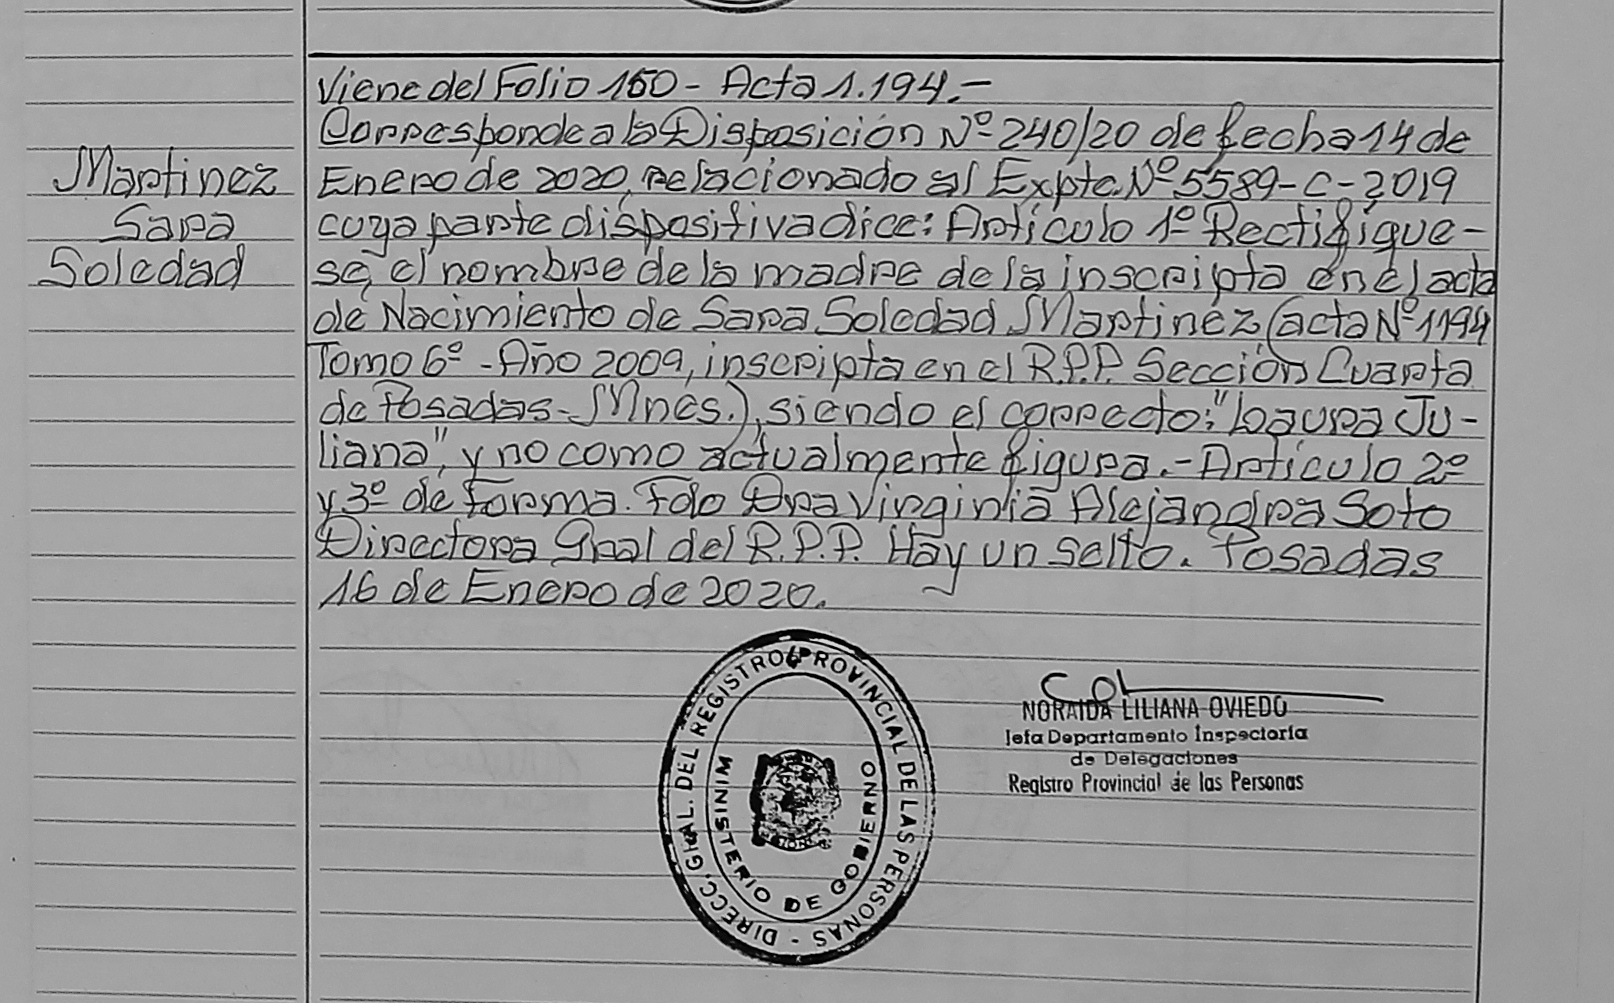 Martinez
Sara
Soledad
Viene del Folio 160 - Acta 1.194.-
Corresponde a la Disposición Nº 240/20 de fecha 14 de
Enero de 2020, relacionado al Expte. Nº 5589-C-2019
cuya parte dispositiva dice: Artículo 1º Rectifíque-
se, el nombre de la madre de la inscripta en el acta
de Nacimiento de Sara Soledad Martinez (acta Nº 1194
Tomo 6º - Año 2009, inscripta en el R.P.P. Sección Cuarta
de Posadas - Mnes.), siendo el correcto: "Laura Ju-
liana", y no como actualmente figura. - Artículo 2º
y 3º de forma. Fdo Dra Virginia Alejandra Soto
Directora Gral del R.P.P. Hay un sello. Posadas
16 de Enero de 2020.
DIRECC. GRAL. DEL REGISTRO PROVINCIAL DE LAS PERSONAS -
MINISTERIO DE GOBIERNO
NORAIDA LILIANA OVIEDO
Jefa Departamento Inspectoria
de Delegaciones
Registro Provincial de las Personas